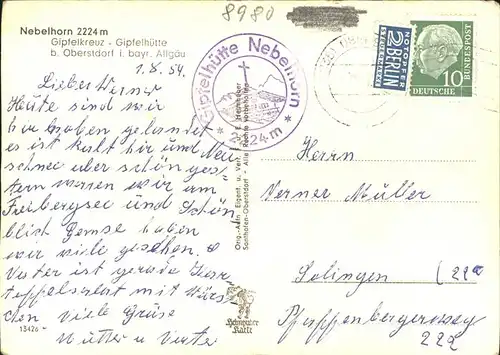 8980
Nebelhorn 2224 m
Gipfelkreuz - Gipfelhütte
b. Oberstdorf i. bayr. Allgäu
1.8.54.
Lieber Werner
Heute sind wir
hier oben gelandet
es ist kalt hir und Neu
schnee aber schön ges-
tern waren wir am
Freibergsee und Schön
blick Gemse haben
wir viele gesehen.
Vater ist gerade Kar-
toffelsalat mit Würs
chen viele Grüse
Mutter u Vater
13426
Gipfelhütte Nebelhorn
* 2224 m *
Orig.-Adm. Eigent. u. Verl.
Sonthofen-Oberstdorf - Alle Rechte vorbehalten
NOTOPFER
2 BERLIN
STEUERMARKE
10
DEUTSCHE BUNDESPOST
Herrn
Werner Müller
Solingen (22a
Pfaffenbergerweg
222